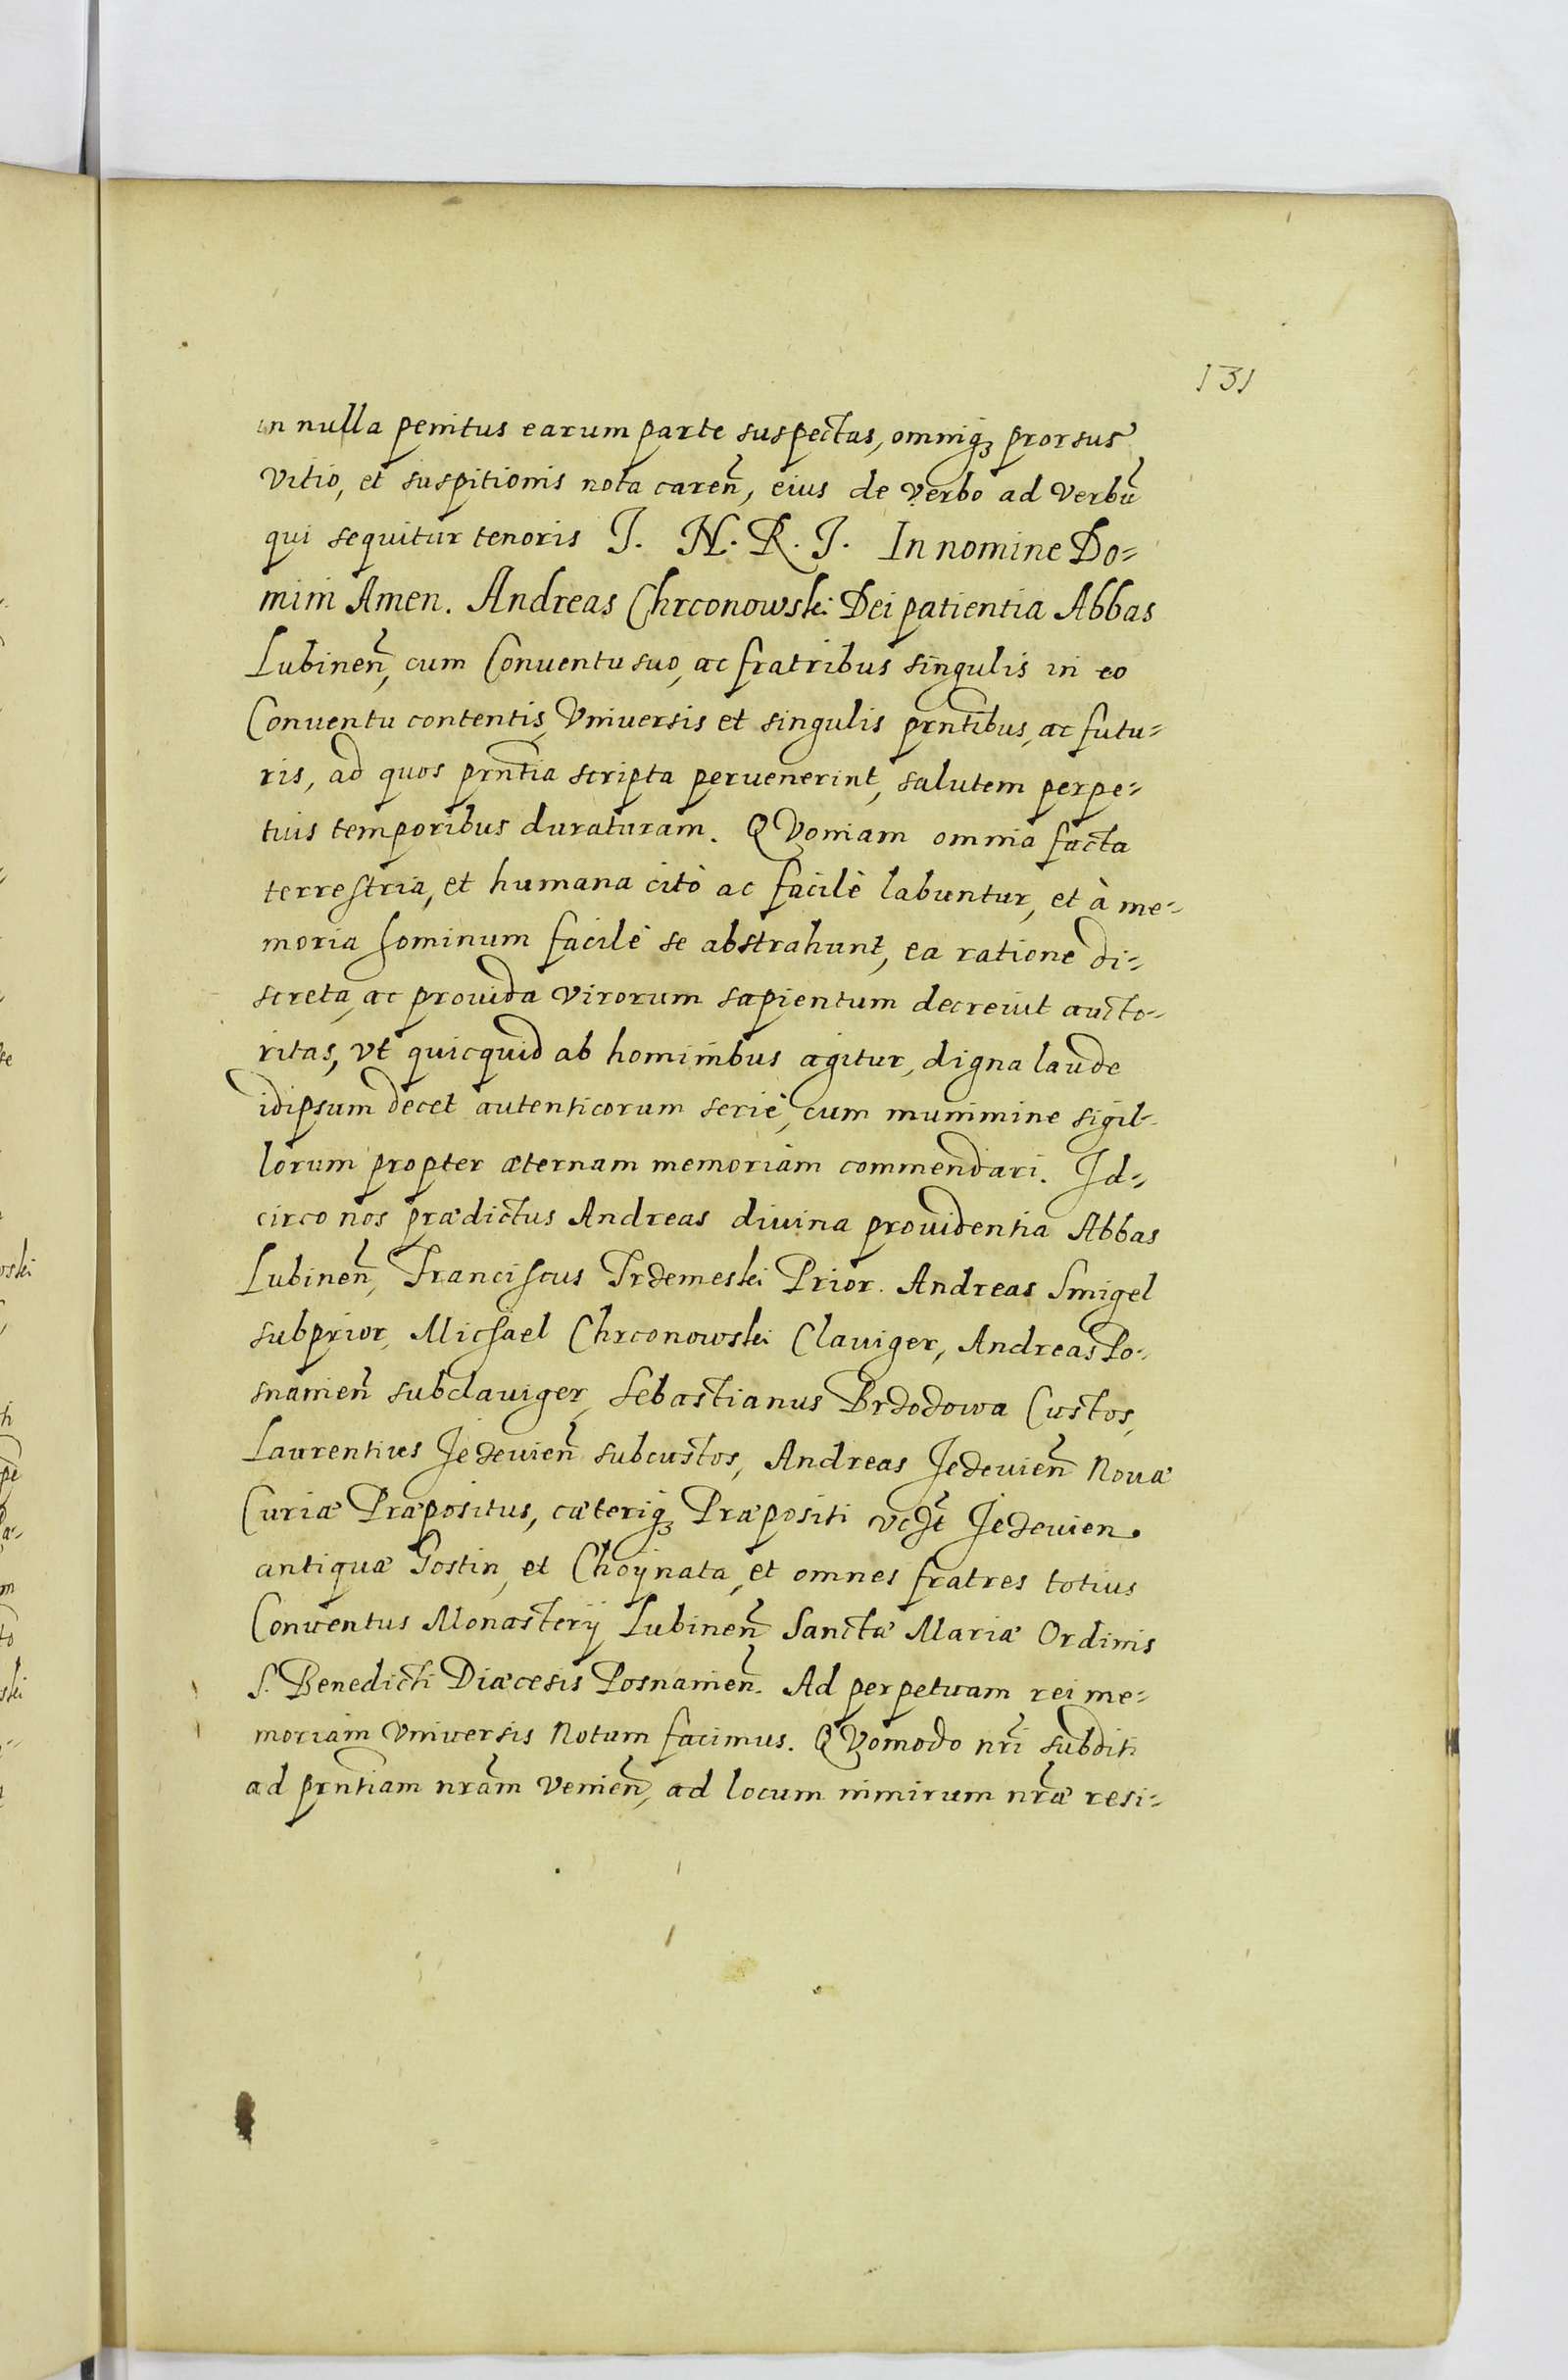 131
in nulla penitus earum parte suspectas, omniq; prorsus
vitio, et suspitionis nota careñ, eius de verbo ad verbũ
qui sequitur tenoris J. N. R. J. In nomine Do=
mini Amen. Andreas Chrconowski Dei patientia Abbas
Lubineñ, cum Conuentu suo, ac fratribus singulis in eo
Conuentu contentis, Vniuersis et singulis prñtibus, ac futu=
ris, ad quos prñtia scripta peruenerint, salutem perpe=
tuis temporibus duraturam. QVoniam omnia facta
terrestria, et humana citò ac facilè labuntur, et à me=
moria hominum facilè se abstrahunt, ea ratione di=
screta, ac prouida virorum sapientum decreuit aucto=
ritas, vt quicquid ab hominibus agitur, digna laude
idipsum decet autenticorum seriè, cum munimine sigil=
lorum propter æternam memoriam commendari. Id=
circo nos prædictus Andreas diuina prouidentia Abbas
Lubineñ, Franciscus Trdemeski Prior. Andreas Smigel
subprior, Michael Chrconowski Clauiger, Andreas Po=
snanieñ subclauiger, Sebastianus Brdodowa Custos,
Laurentius Jedeuieñ subcustos, Andreas Jedeuieñ Nouæ
Curiæ Præpositus, cæteriq; Præpositi Jedeuien.
antiquæ Gostin, et Choynata, et omnes fratres totius
Conuentus Monasterij Lubineñ Sanctæ Mariæ Ordinis
S. Benedicti Diæcesis Posnanieñ. Ad perpetuam rei me=
moriam Vniuersis Notum facimus. QVomodo nr̃i subditi
ad prñtiam nrãm Venieñ, ad locum nimirum nrã̃e resi=